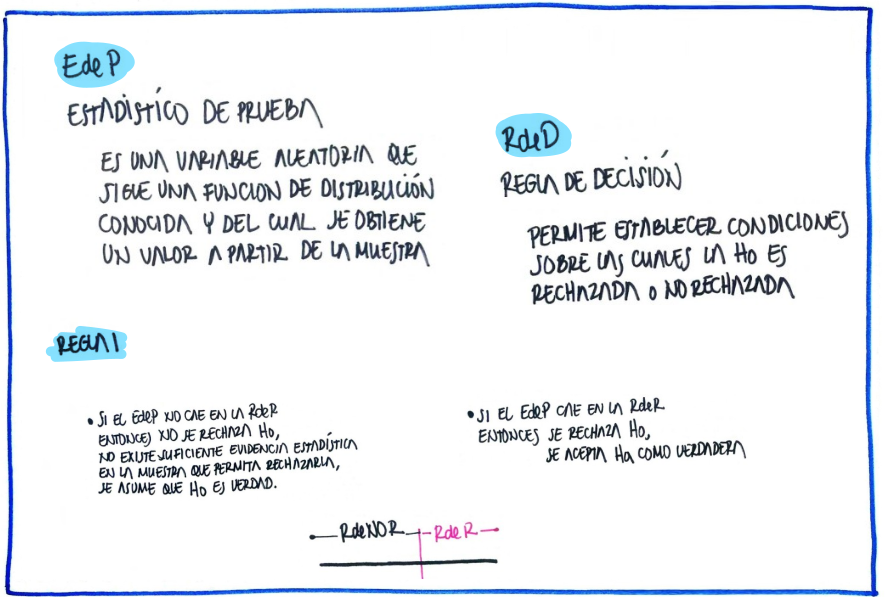 EdeP
ESTADÍSTICO DE PRUEBA
ES UNA VARIABLE ALEATORIA QUE
SIGUE UNA FUNCION DE DISTRIBUCIÓN
CONOCIDA Y DEL CUAL SE OBTIENE
UN VALOR A PARTIR DE LA MUESTRA
RdeD
REGLA DE DECISIÓN
PERMITE ESTABLECER CONDICIONES
SOBRE LAS CUALES LA HO ES
RECHAZADA O NO RECHAZADA
REGLA 1
• SI EL EdeP NO CAE EN LA RdeR
ENTONCES NO SE RECHAZA HO,
NO EXISTE SUFICIENTE EVIDENCIA ESTADÍSTICA
EN LA MUESTRA QUE PERMITA RECHAZARLA,
SE ASUME QUE HO ES VERDAD.
• SI EL EdeP CAE EN LA RdeR
ENTONCES SE RECHAZA HO,
SE ACEPTA Ha COMO VERDADERA
RdeNOR RdeR